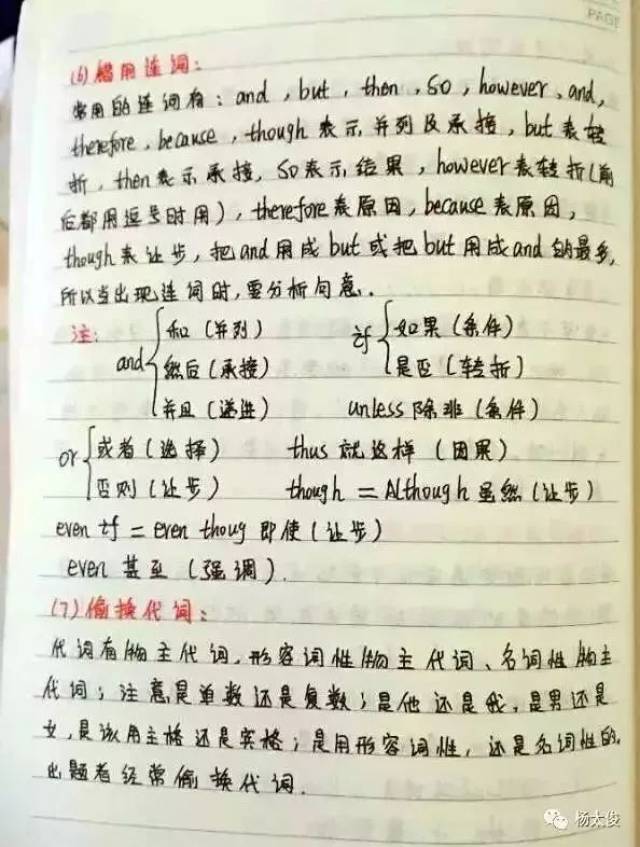 PAGE
(6) 错用连词：
常用的连词有：and，but，then，so，however、and，
therefore，because，though 表示并列及承接，but表转
折，then表示承接，so表示结果，however表转折(前
后都用逗号时用)，therefore表原因，because表原因，
though表让步，把and用成but或把but用成and的最多，
所以当出现连词时，要分析句意.
注： and 和 (并列) if 如果 (条件)
然后 (承接) 是否 (转折)
并且 (递进) unless 除非 (条件)
or 或者 (选择) thus 就这样 (因果)
否则 (让步) though = Although 虽然 (让步)
even if = even thoug 即使 (让步)
even 甚至 (强调).
(7) 偷换代词：
代词有物主代词，形容词性物主代词、名词性物主
代词；注意是单数还是复数；是他还是我，是男还是
女，是该用主格还是宾格；是用形容词性，还是名词性的.
出题者经常偷换代词.
杨太俊